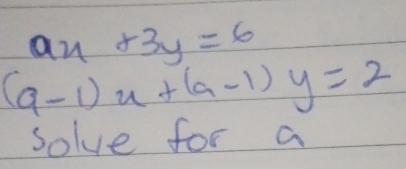 ax + 3y = 6
(a-1) x + (a-1) y = 2
Solve for a